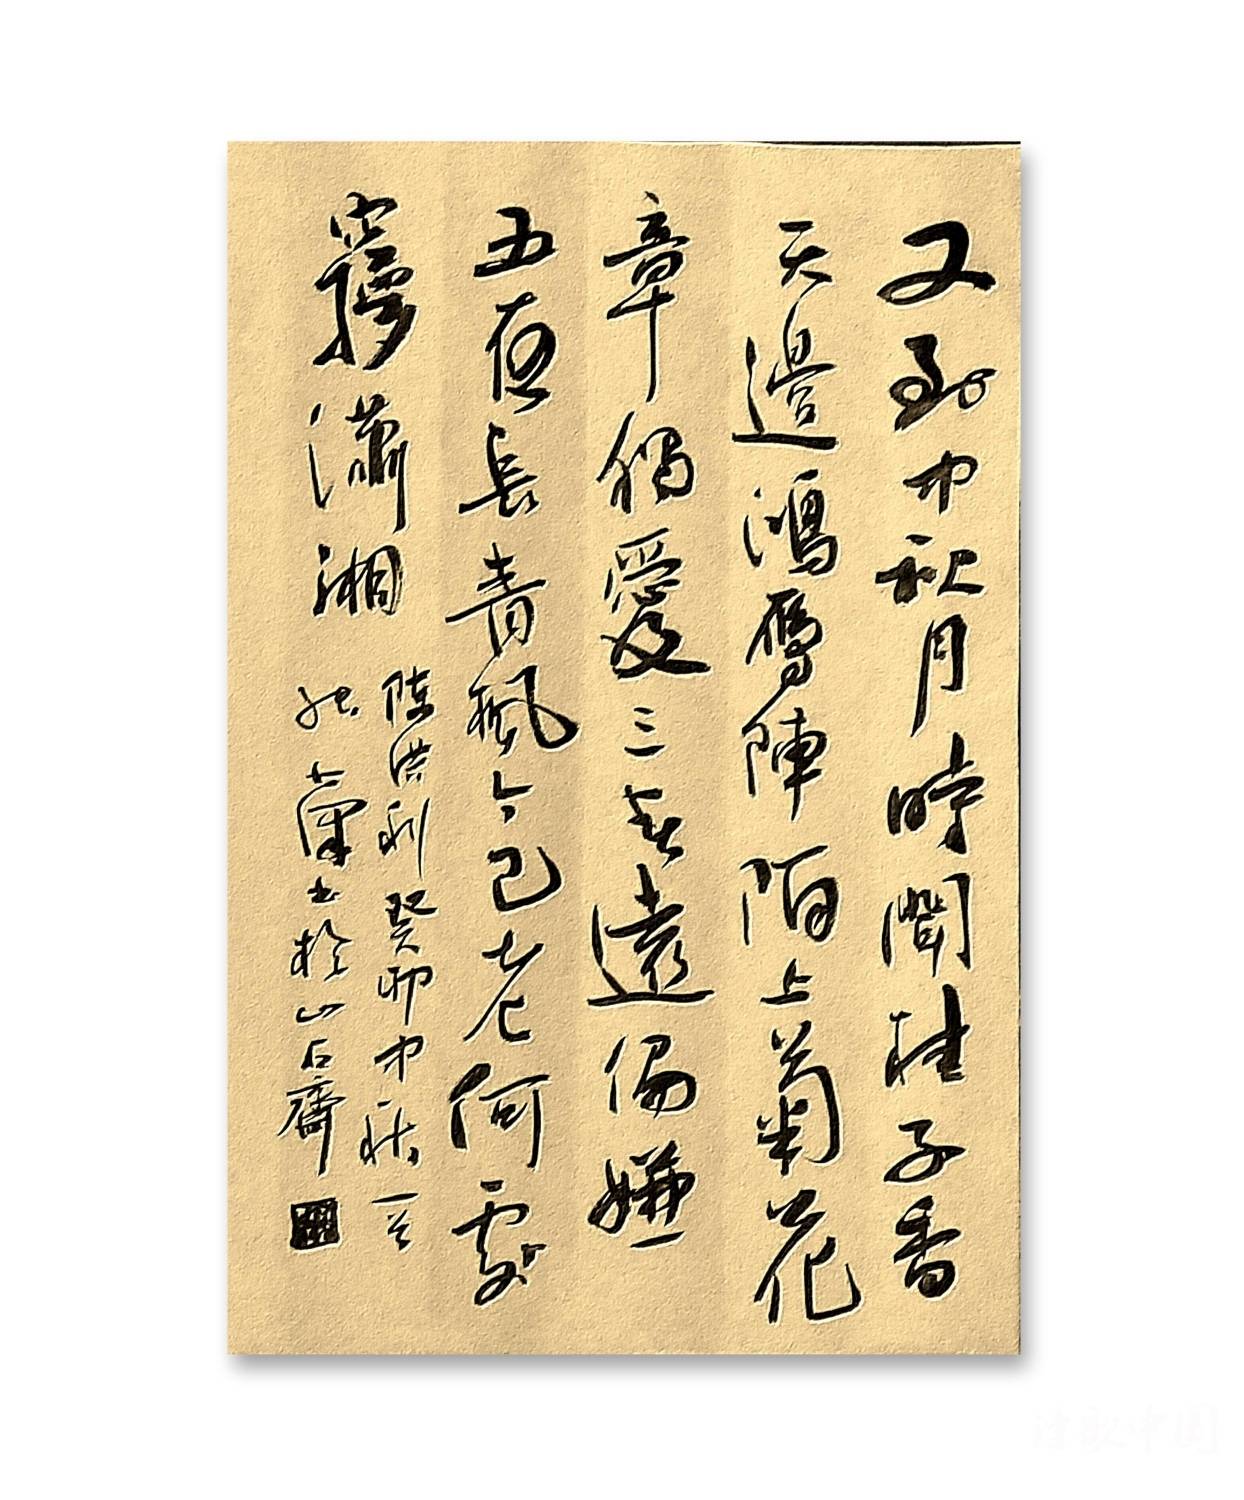 又到中秋月時聞桂子香
天邊鴻雁陣陌上菊花
章獨愛三春遠偏嫌
五夜長青楓今已老何處
窮瀟湘
陳洪利癸卯中秋
書於山石齋